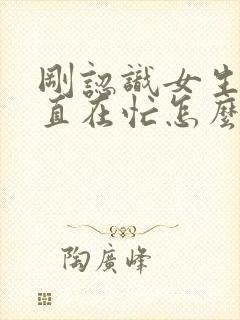 剛認識女生
直在忙怎麼
陶廣峰